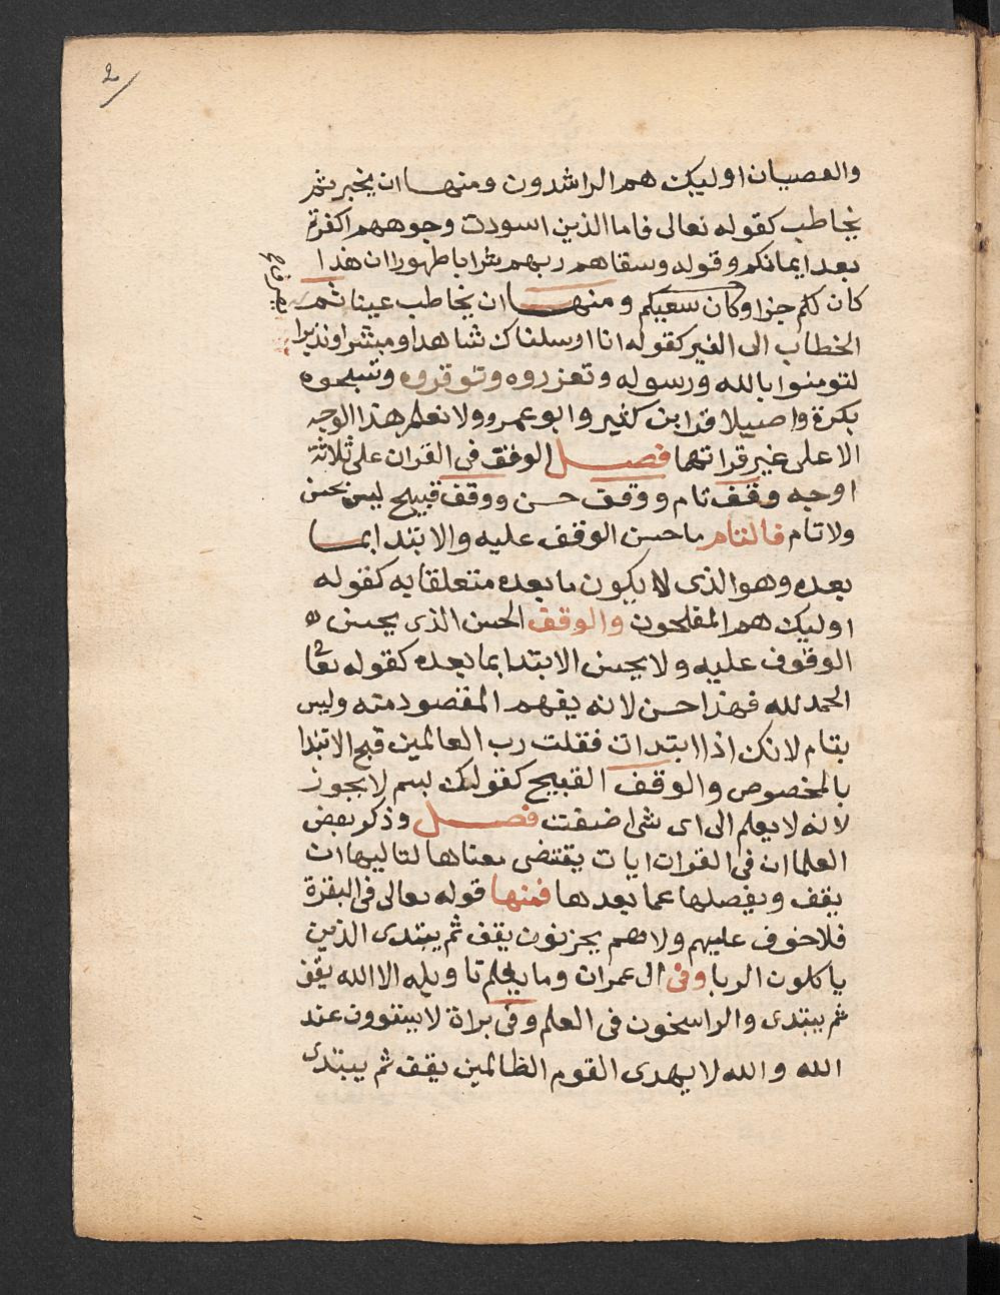 2
والعصيان اوليك هم الراشدون ومنها ان يخبر ثم
يخاطب كقوله تعالى فاما الذين اسودت وجوههم اكفرتم
بعد ايمانكم وقوله وسقاهم ربهم شرابا طهورا ان هذا
كان لكم جزا وكان سعيكم ومنها ان يخاطب عينا ثم
الخطاب الى الغير كقوله انا ارسلناك شاهدا ومبشرا ونذيرا
لتومنوا بالله ورسوله وتعزروه وتوقروه وتسبحوه
بكرة واصيلا قرا ابن كثير وابو عمرو ولا نعلم هذا الوجه
الا على غير قراتهما فصل الوقف في القران على ثلاثة
اوجه وقف تام ووقف حسن ووقف قبيح ليس بحسن
ولا تام فالتام ما حسن الوقف عليه والابتدا بما
بعده وهو الذى لا يكون ما بعده متعلقا به كقوله
اوليك هم المفلحون والوقف الحسن الذى يحسن
الوقوف عليه ولا يحسن الابتدا بما بعده كقوله تعا
الحمد لله فهذا حسن لانه يفهم المقصود منه وليس
بتام لانك اذا ابتدات فقلت رب العالمين قبح الابتدا
بالمخصوص والوقف القبيح كقولك بسم لا يجوز
لانه لا يعلم الى اى شى اضفت فصل وذكر بعض
العلما ان في القران ايات يقتضى معناها لتاليها ان
يقف ويفصلها عما بعدها فمنها قوله تعالى في البقرة
فلا خوف عليهم ولا هم يحزنون يقف ثم يبتدى الذين
ياكلون الربا وفى ال عمران وما يعلم تاويله الا الله يقف
ثم يبتدى والراسخون في العلم وفى براة لا يستوون عند
الله والله لا يهدى القوم الظالمين يقف ثم يبتدى